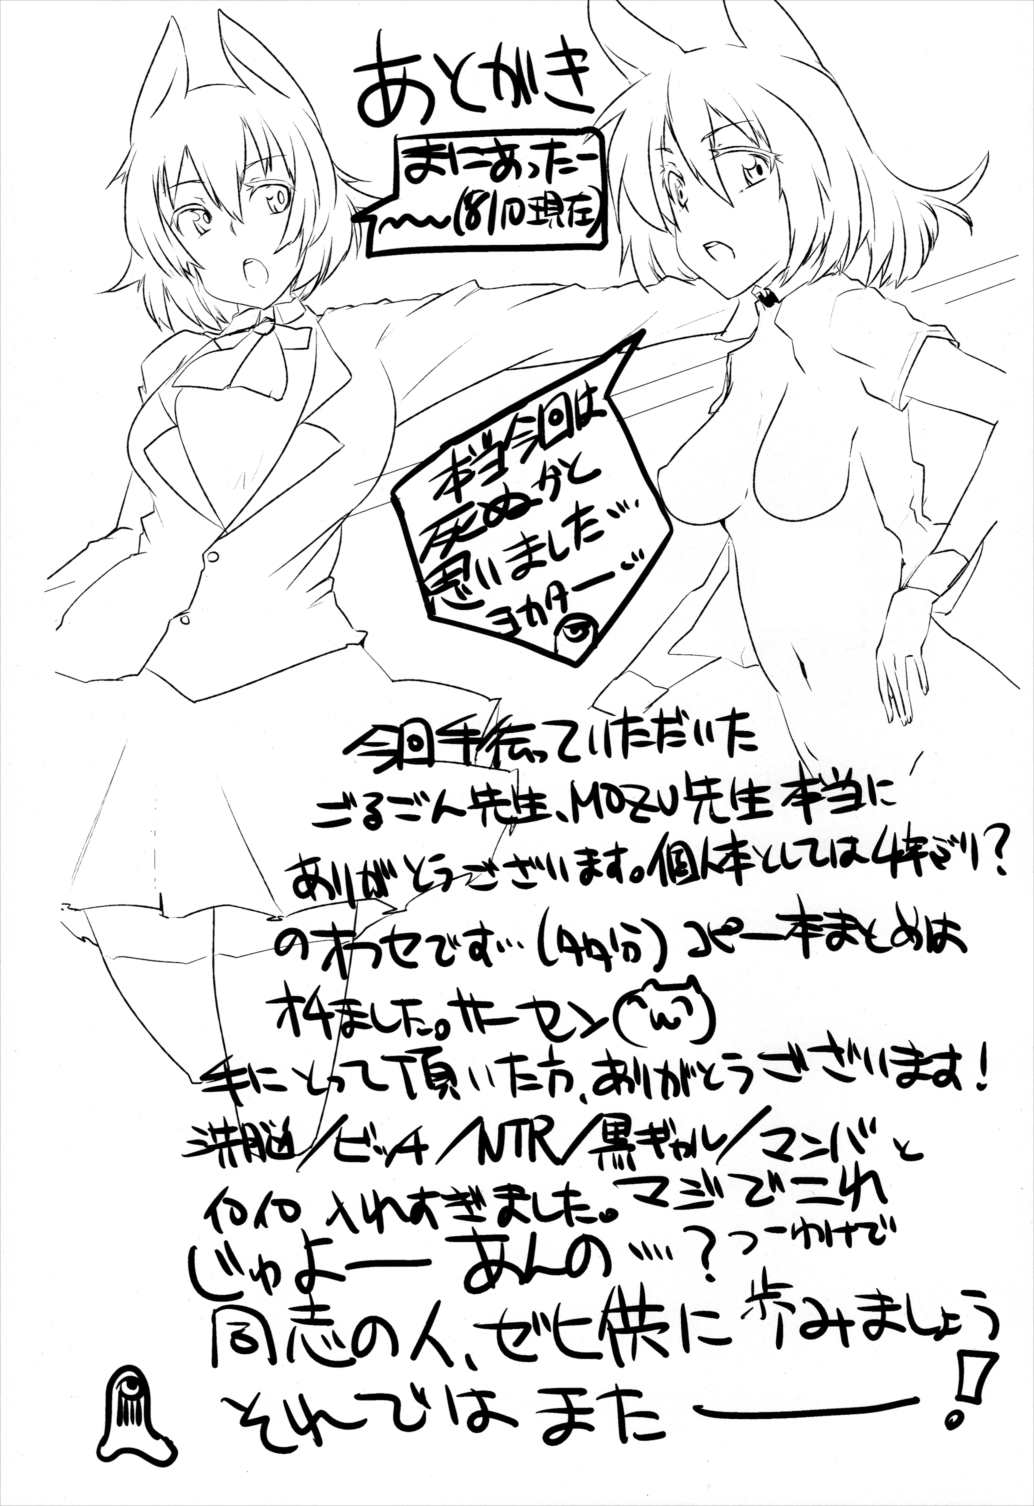 あとがき
まにあったー
〜〜(8/10現在)
本当今回は
死ぬかと
思いました…
ヨカター…
今回手伝っていただいた
ごるごん先生、MOZU先生本当に
ありがとうございます。個人本としては4年ぶり?
のオフセです…(多分)コピー本まとめは
オチました。サーセン(^ω^)
手にとって頂いた方、ありがとうございます!
洗脳/ビッチ/NTR/黒ギャル/マンバと
イロイロ入れすぎました。マジでこれ
じゅよーあんの…?つーわけで
同志の人、ゼヒ供に歩みましょう
それではまたー!